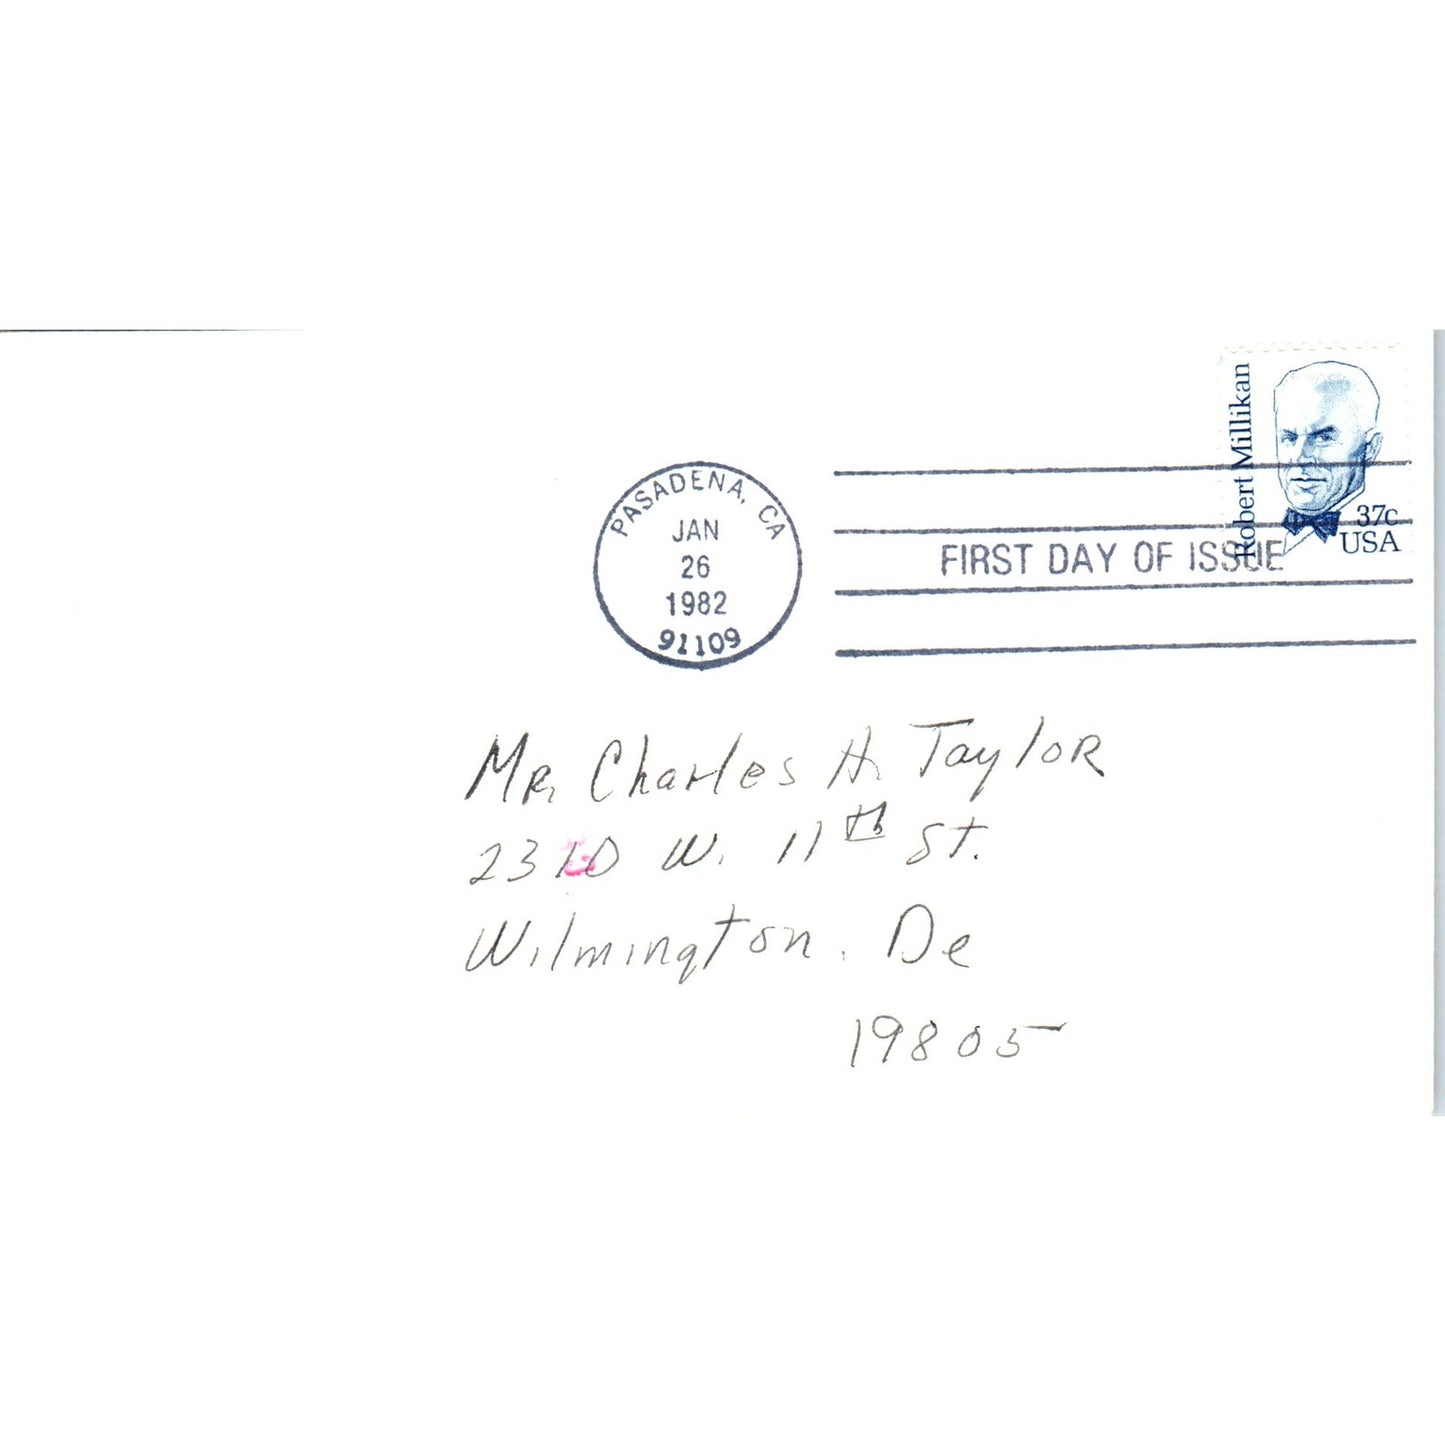 Robert Millikan
37c
USA
PASADENA, CA
JAN
26
1982
91109
FIRST DAY OF ISSUE
Mr. Charles H. Taylor
W. 11th St.
Wilmington, De
19805